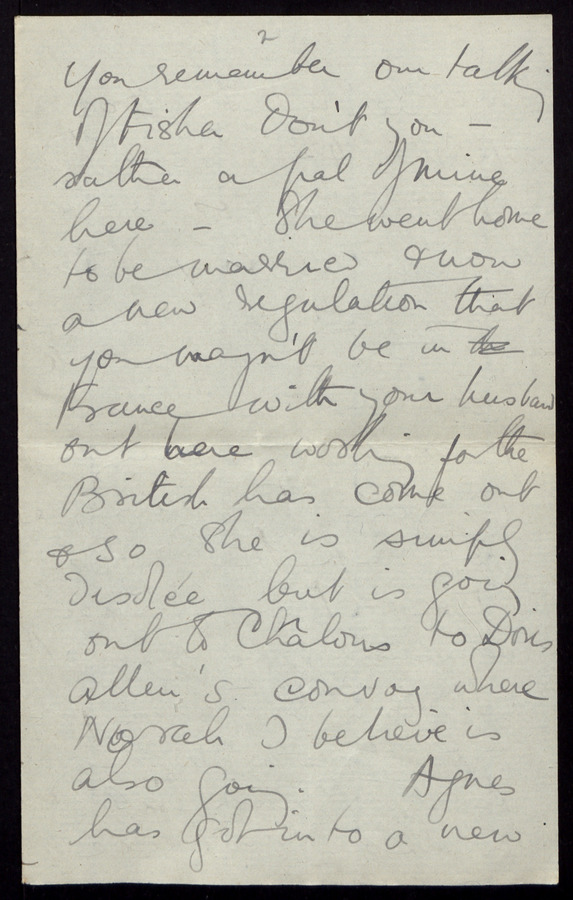 2
You remember our talk
of Fisher Don't you –
rather a pal of mine
here – She went home
to be married & now
a new regulation that
you mayn't be in the
France with your husband
out here working for the
British has come out
& so She is simply
but is going
out to Châlons to Doris
Allen's convoy where
Norah I believe is
also going. Agnes
has got into a new